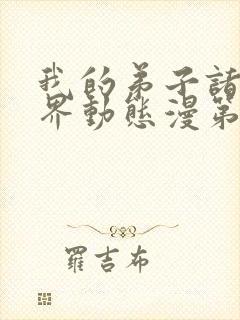 我的弟子諸
界動態漫第
羅吉布